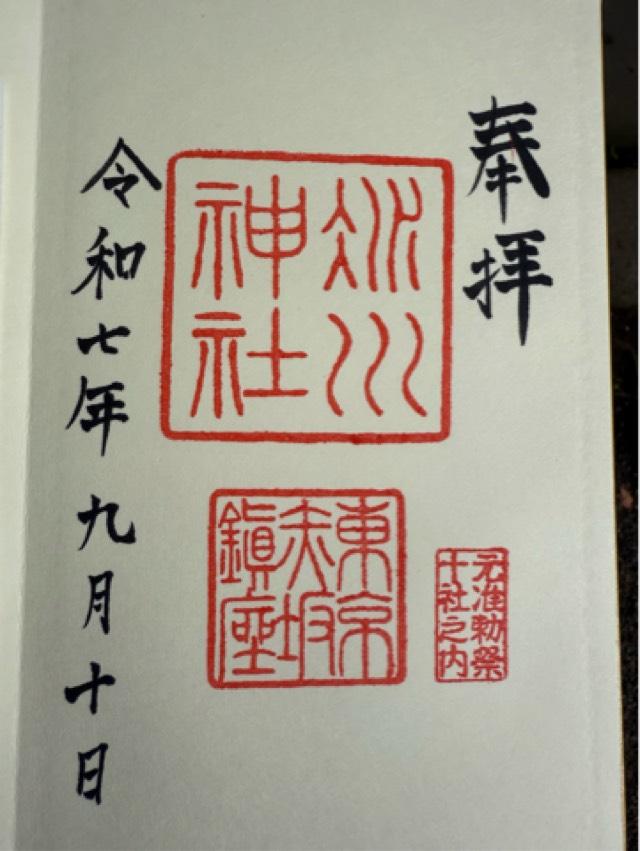 奉拝
氷川
神社
東京
赤坂
鎭座
元准勅祭
十社之内
令和七年九月十日